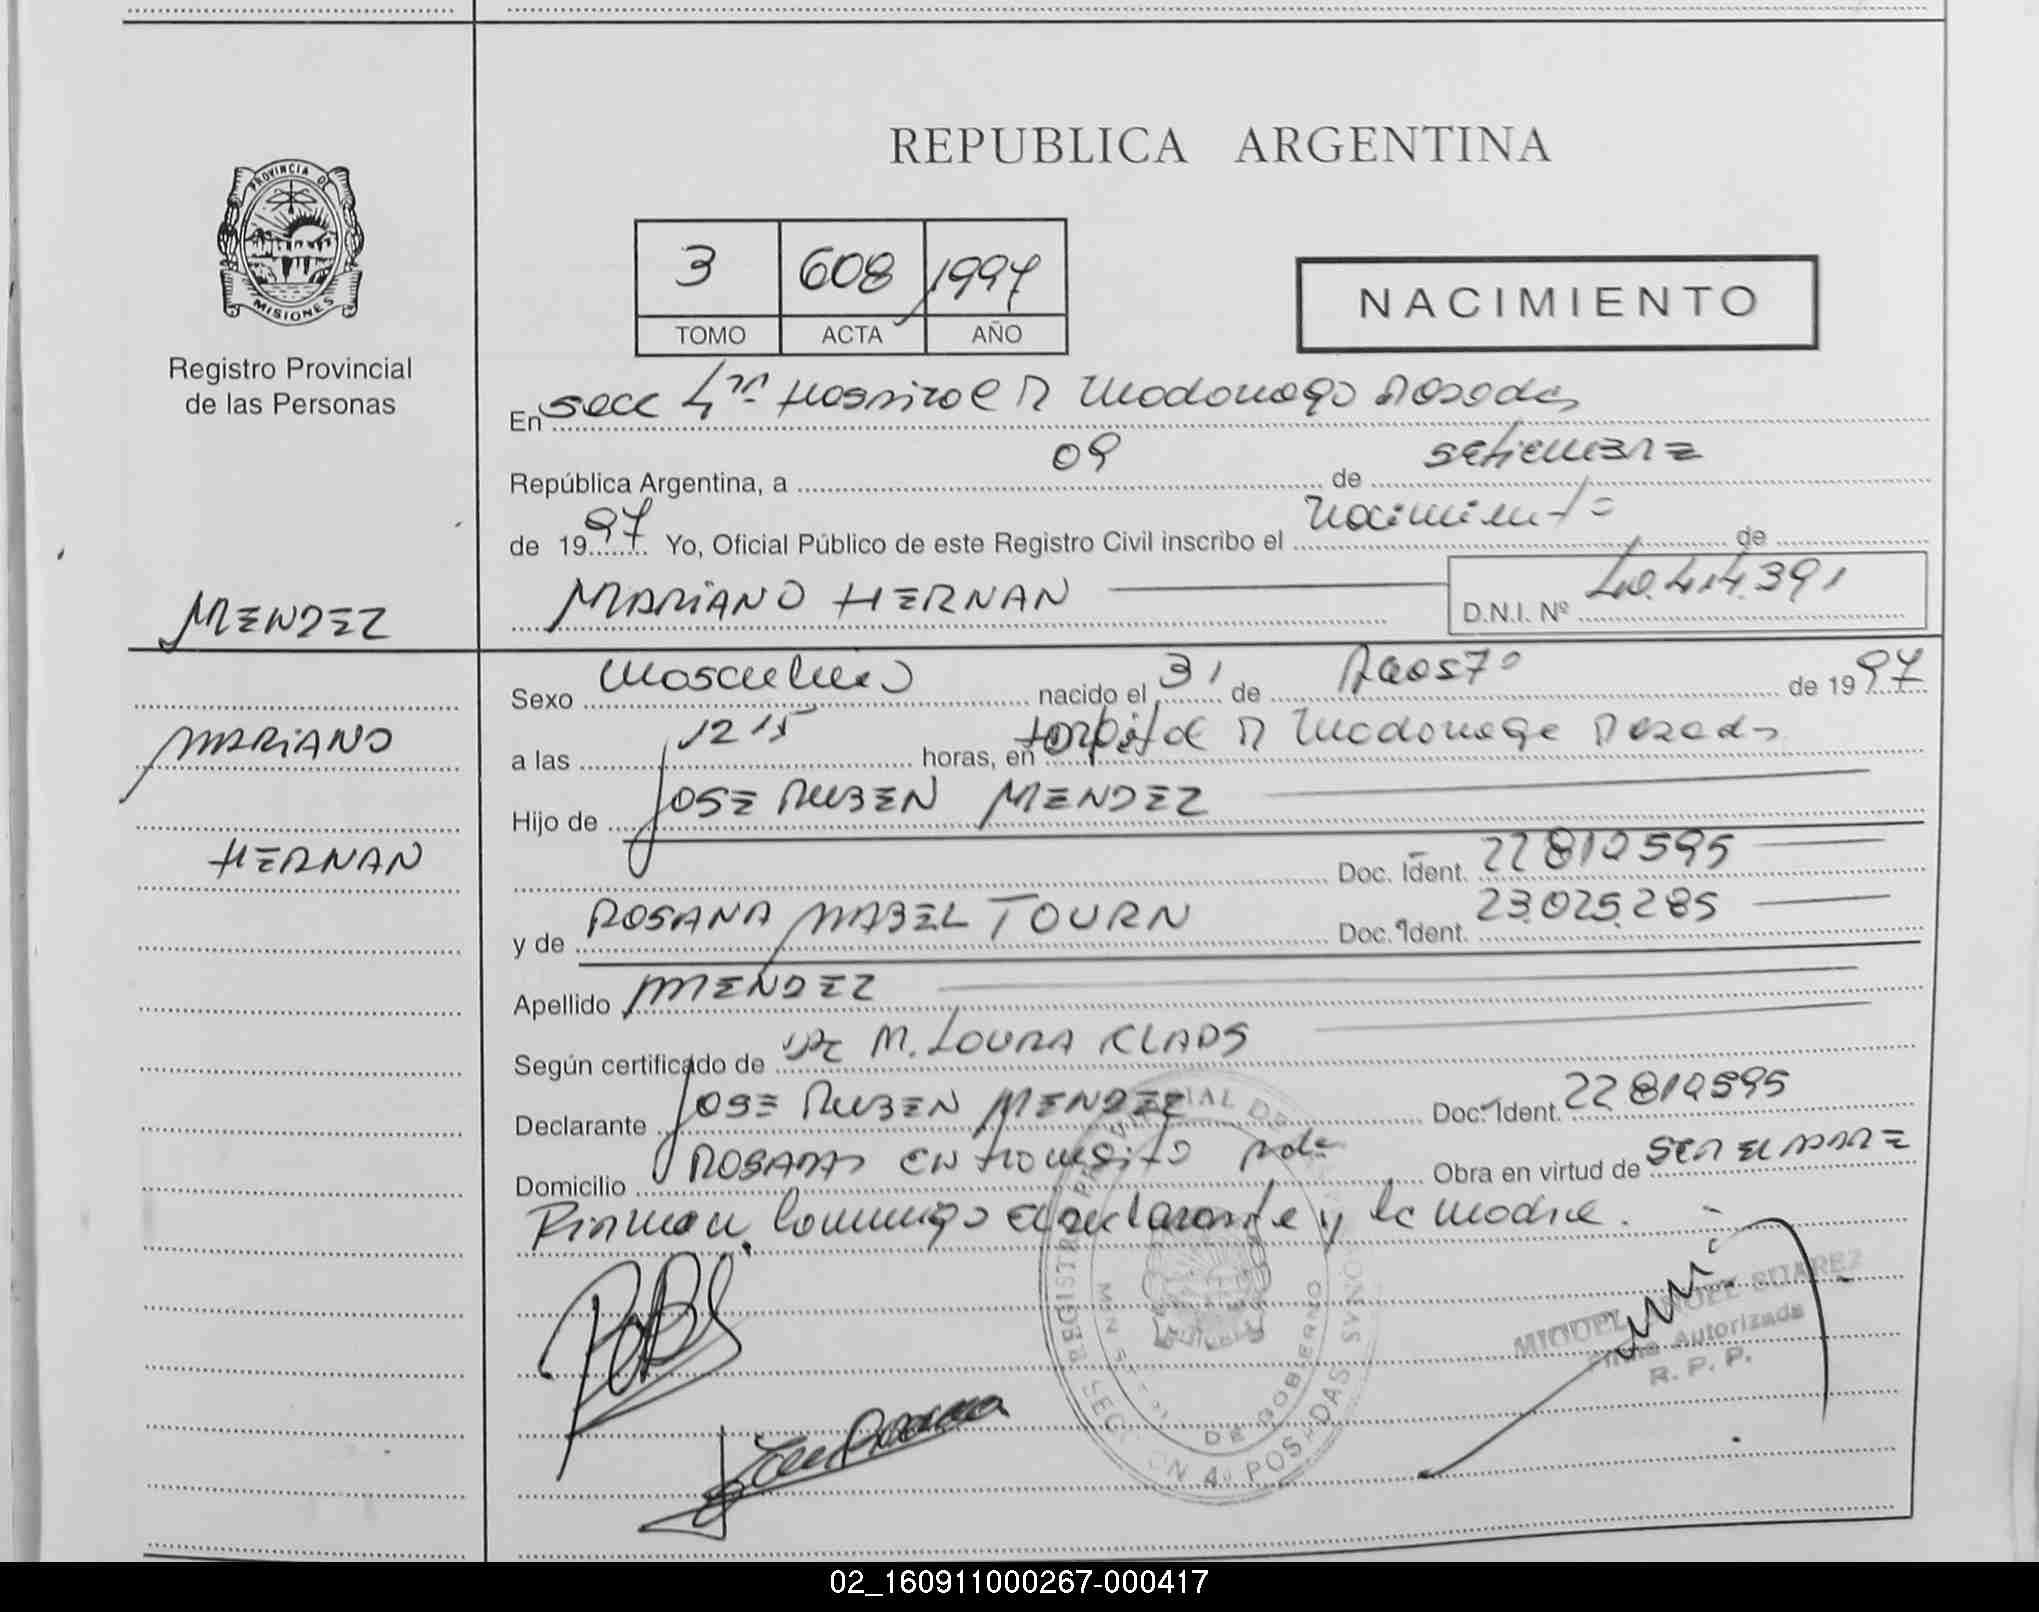 REPUBLICA ARGENTINA
PROVINCIA DE
MISIONES
Registro Provincial
de las Personas
3 608 1997
TOMO ACTA AÑO
NACIMIENTO
En Secc 4ta Hospital R Madariaga Posadas
República Argentina, a 09 de setiembre
de 1997 Yo, Oficial Público de este Registro Civil inscribo el nacimiento de
MENDEZ
MARIANO HERNAN
D.N.I. Nº 40.414.391
Sexo Masculino nacido el 31 de Agosto de 1997
MARIANO
a las 12 15 horas, en Hospital R Madariaga Posadas
Hijo de JOSE RUBEN MENDEZ
HERNAN
Doc. Ident. 22 812 595
y de ROSANA MABEL TOURN Doc. Ident. 23.025.285
Apellido MENDEZ
Según certificado de M. LAURA KLAPS
Declarante JOSE RUBEN MENDEZ Doc. Ident. 22 812 595
Domicilio en Obra en virtud de SER EL PADRE
Firman conmigo el declarante y la madre.
REGISTRO PROVINCIAL DE LAS PERSONAS
DE GOBIERNO
SECCION 4a POSADAS
MIGUEL ANGEL SUAREZ
Firma Autorizada
R. P. P.
02_160911000267-000417